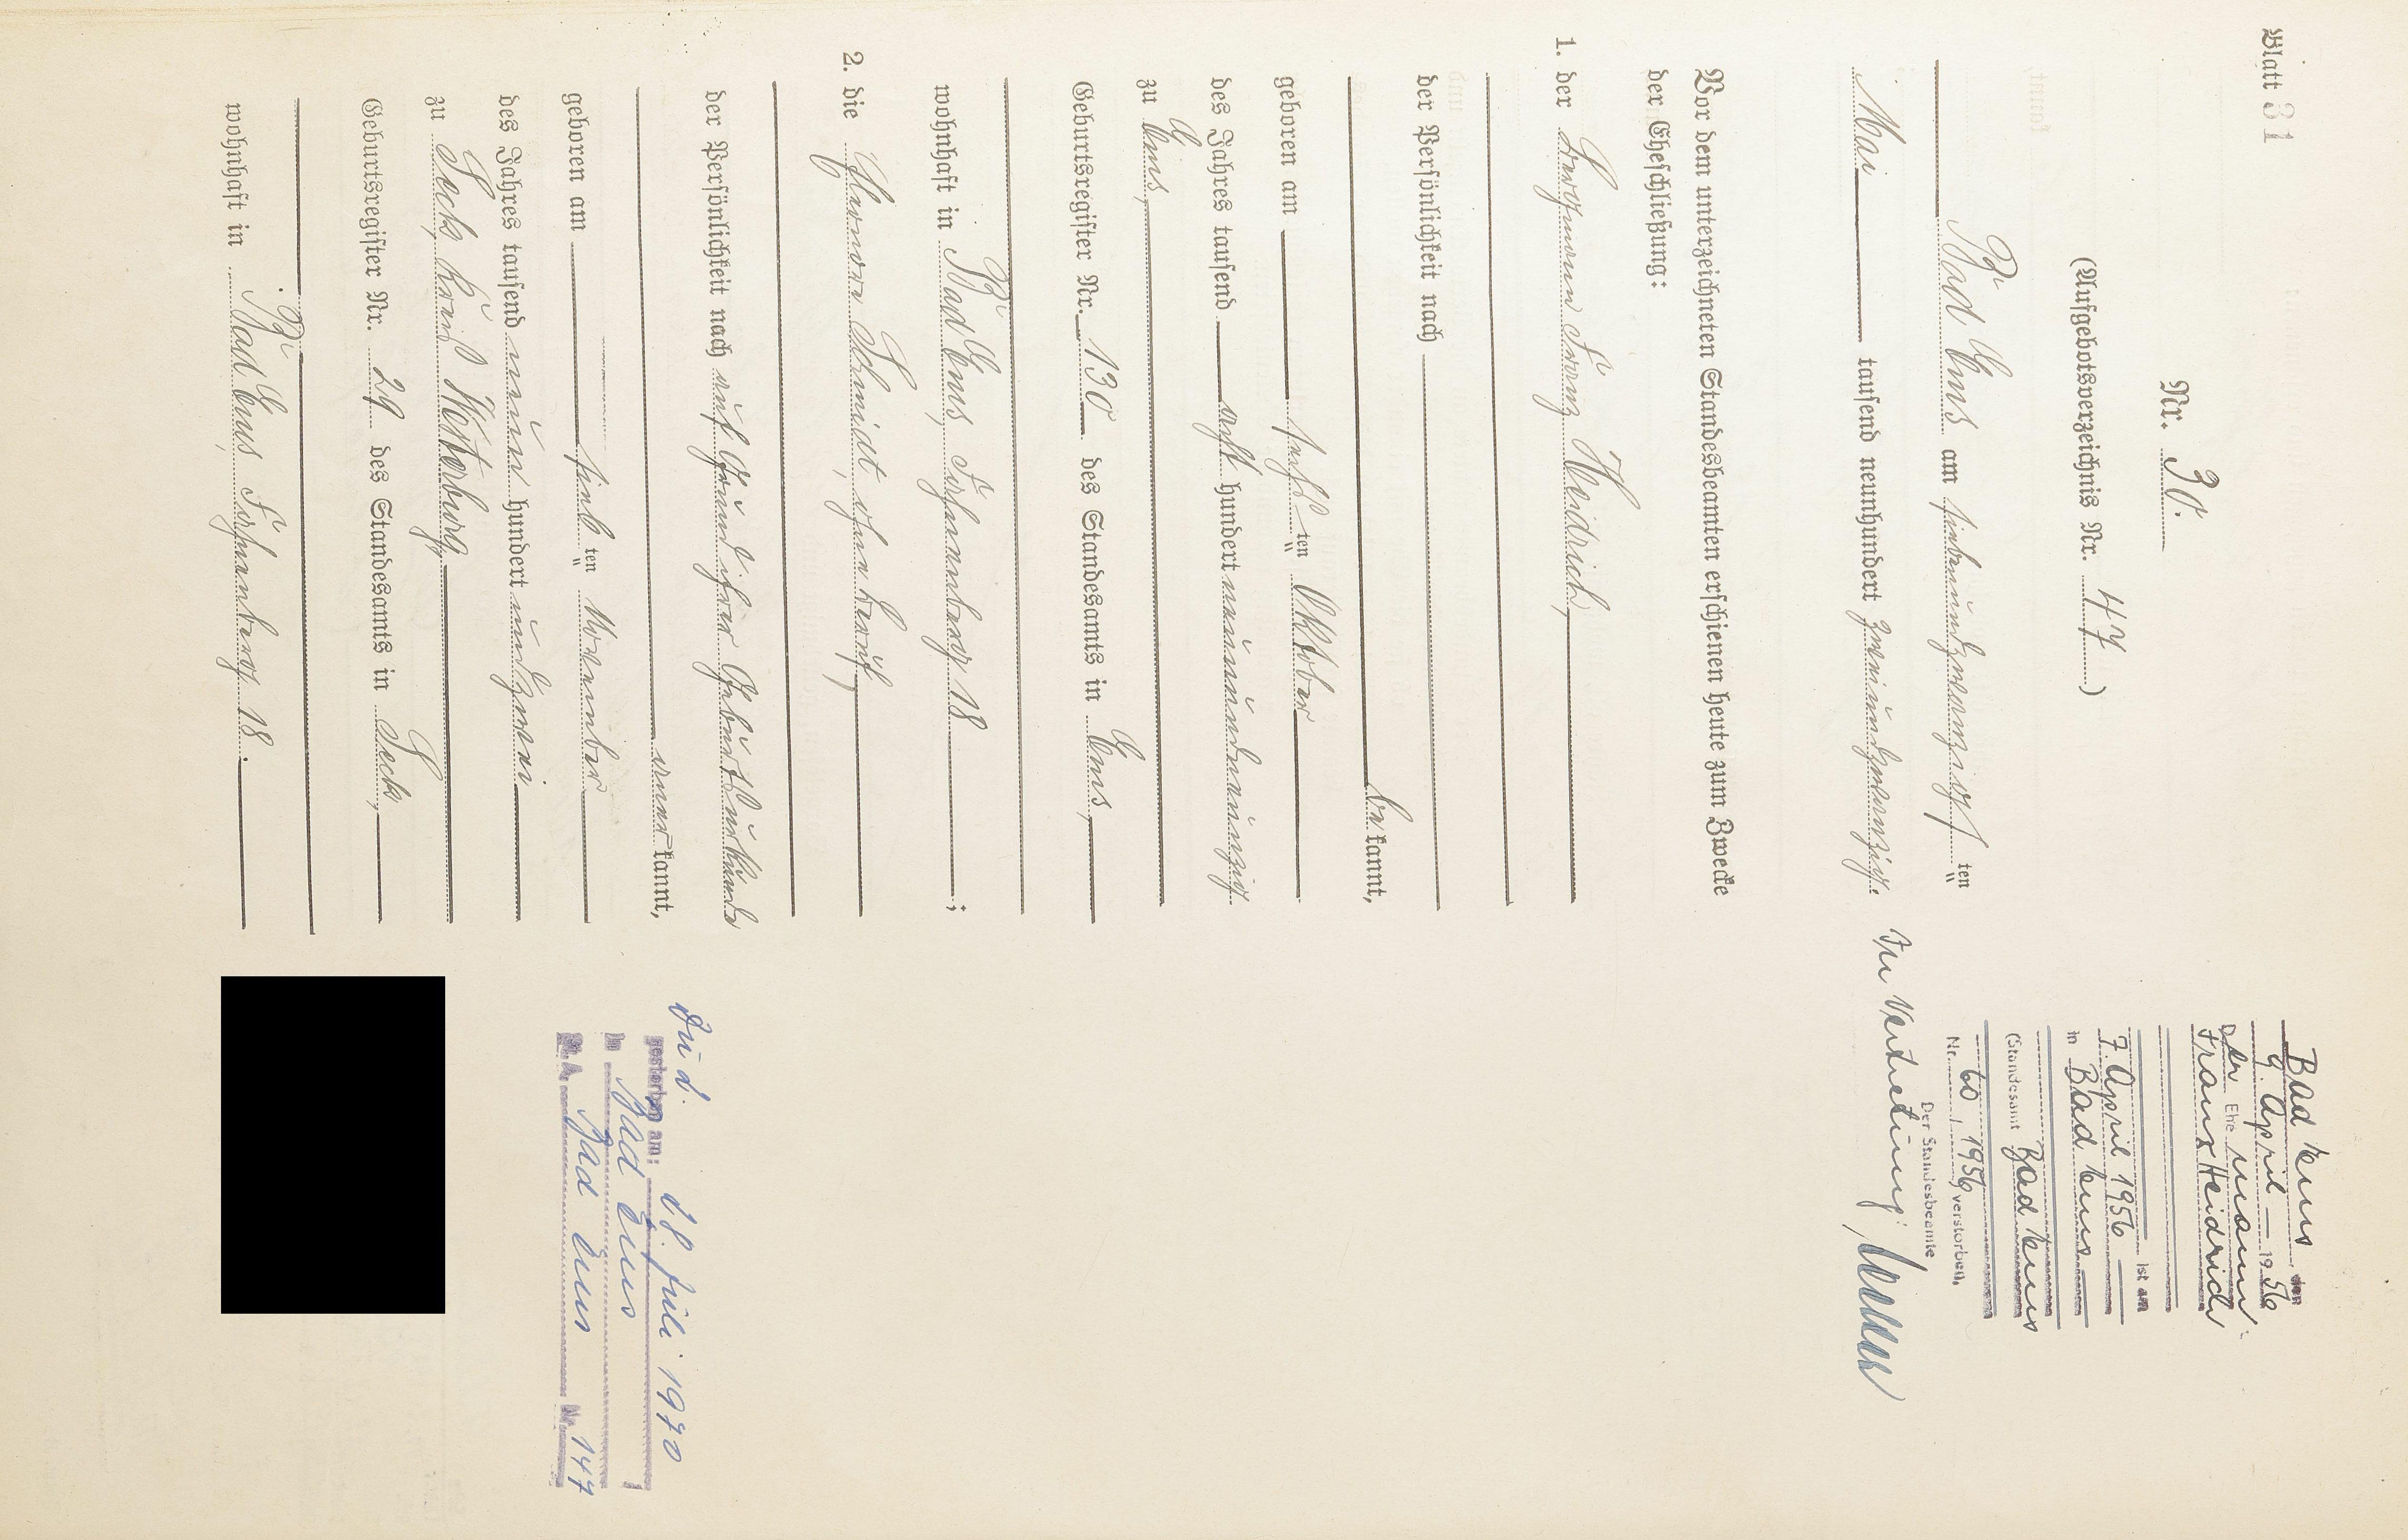 Blatt 31
Nr. 30.
(Aufgebotsverzeichnis Nr. 47)
Bad Ems am siebenundzwanzigsten
Mai tausend neunhundert zweiundzwanzig.
Vor dem unterzeichneten Standesbeamten erschienen heute zum Zwecke
der Eheschließung:
1. der Bergmann Franz Heidrich,
der Persönlichkeit nach
be kannt,
geboren am sechs ten Oktober
des Jahres tausend acht hundert neunundneunzig
zu Ems,
Geburtsregister Nr. 130 des Standesamts in Ems,
wohnhaft in Bad Ems,
18 ;
2. die
Schmidt, ohne Beruf,
der Persönlichkeit nach auf Grund ihrer Geburtsurkunde
aner kannt,
geboren am sieb ten November
des Jahres tausend neun hundert undzwei
zu Seck, Kreis Westerburg,
Geburtsregister Nr. 29 des Standesamts in Seck,
wohnhaft in Bad Ems,
18.
Bad Ems, den
9. April 1956
Der Ehemann
Franz Heidrich
ist am
7. April 1956
in Bad Ems
(Standesamt Bad Ems
Nr. 60, 1956 verstorben.
Der Standesbeamte
In Vertretung:
gestorben am: 28. Juli 1970
in Bad Ems
St.A. Bad Ems Nr. 147